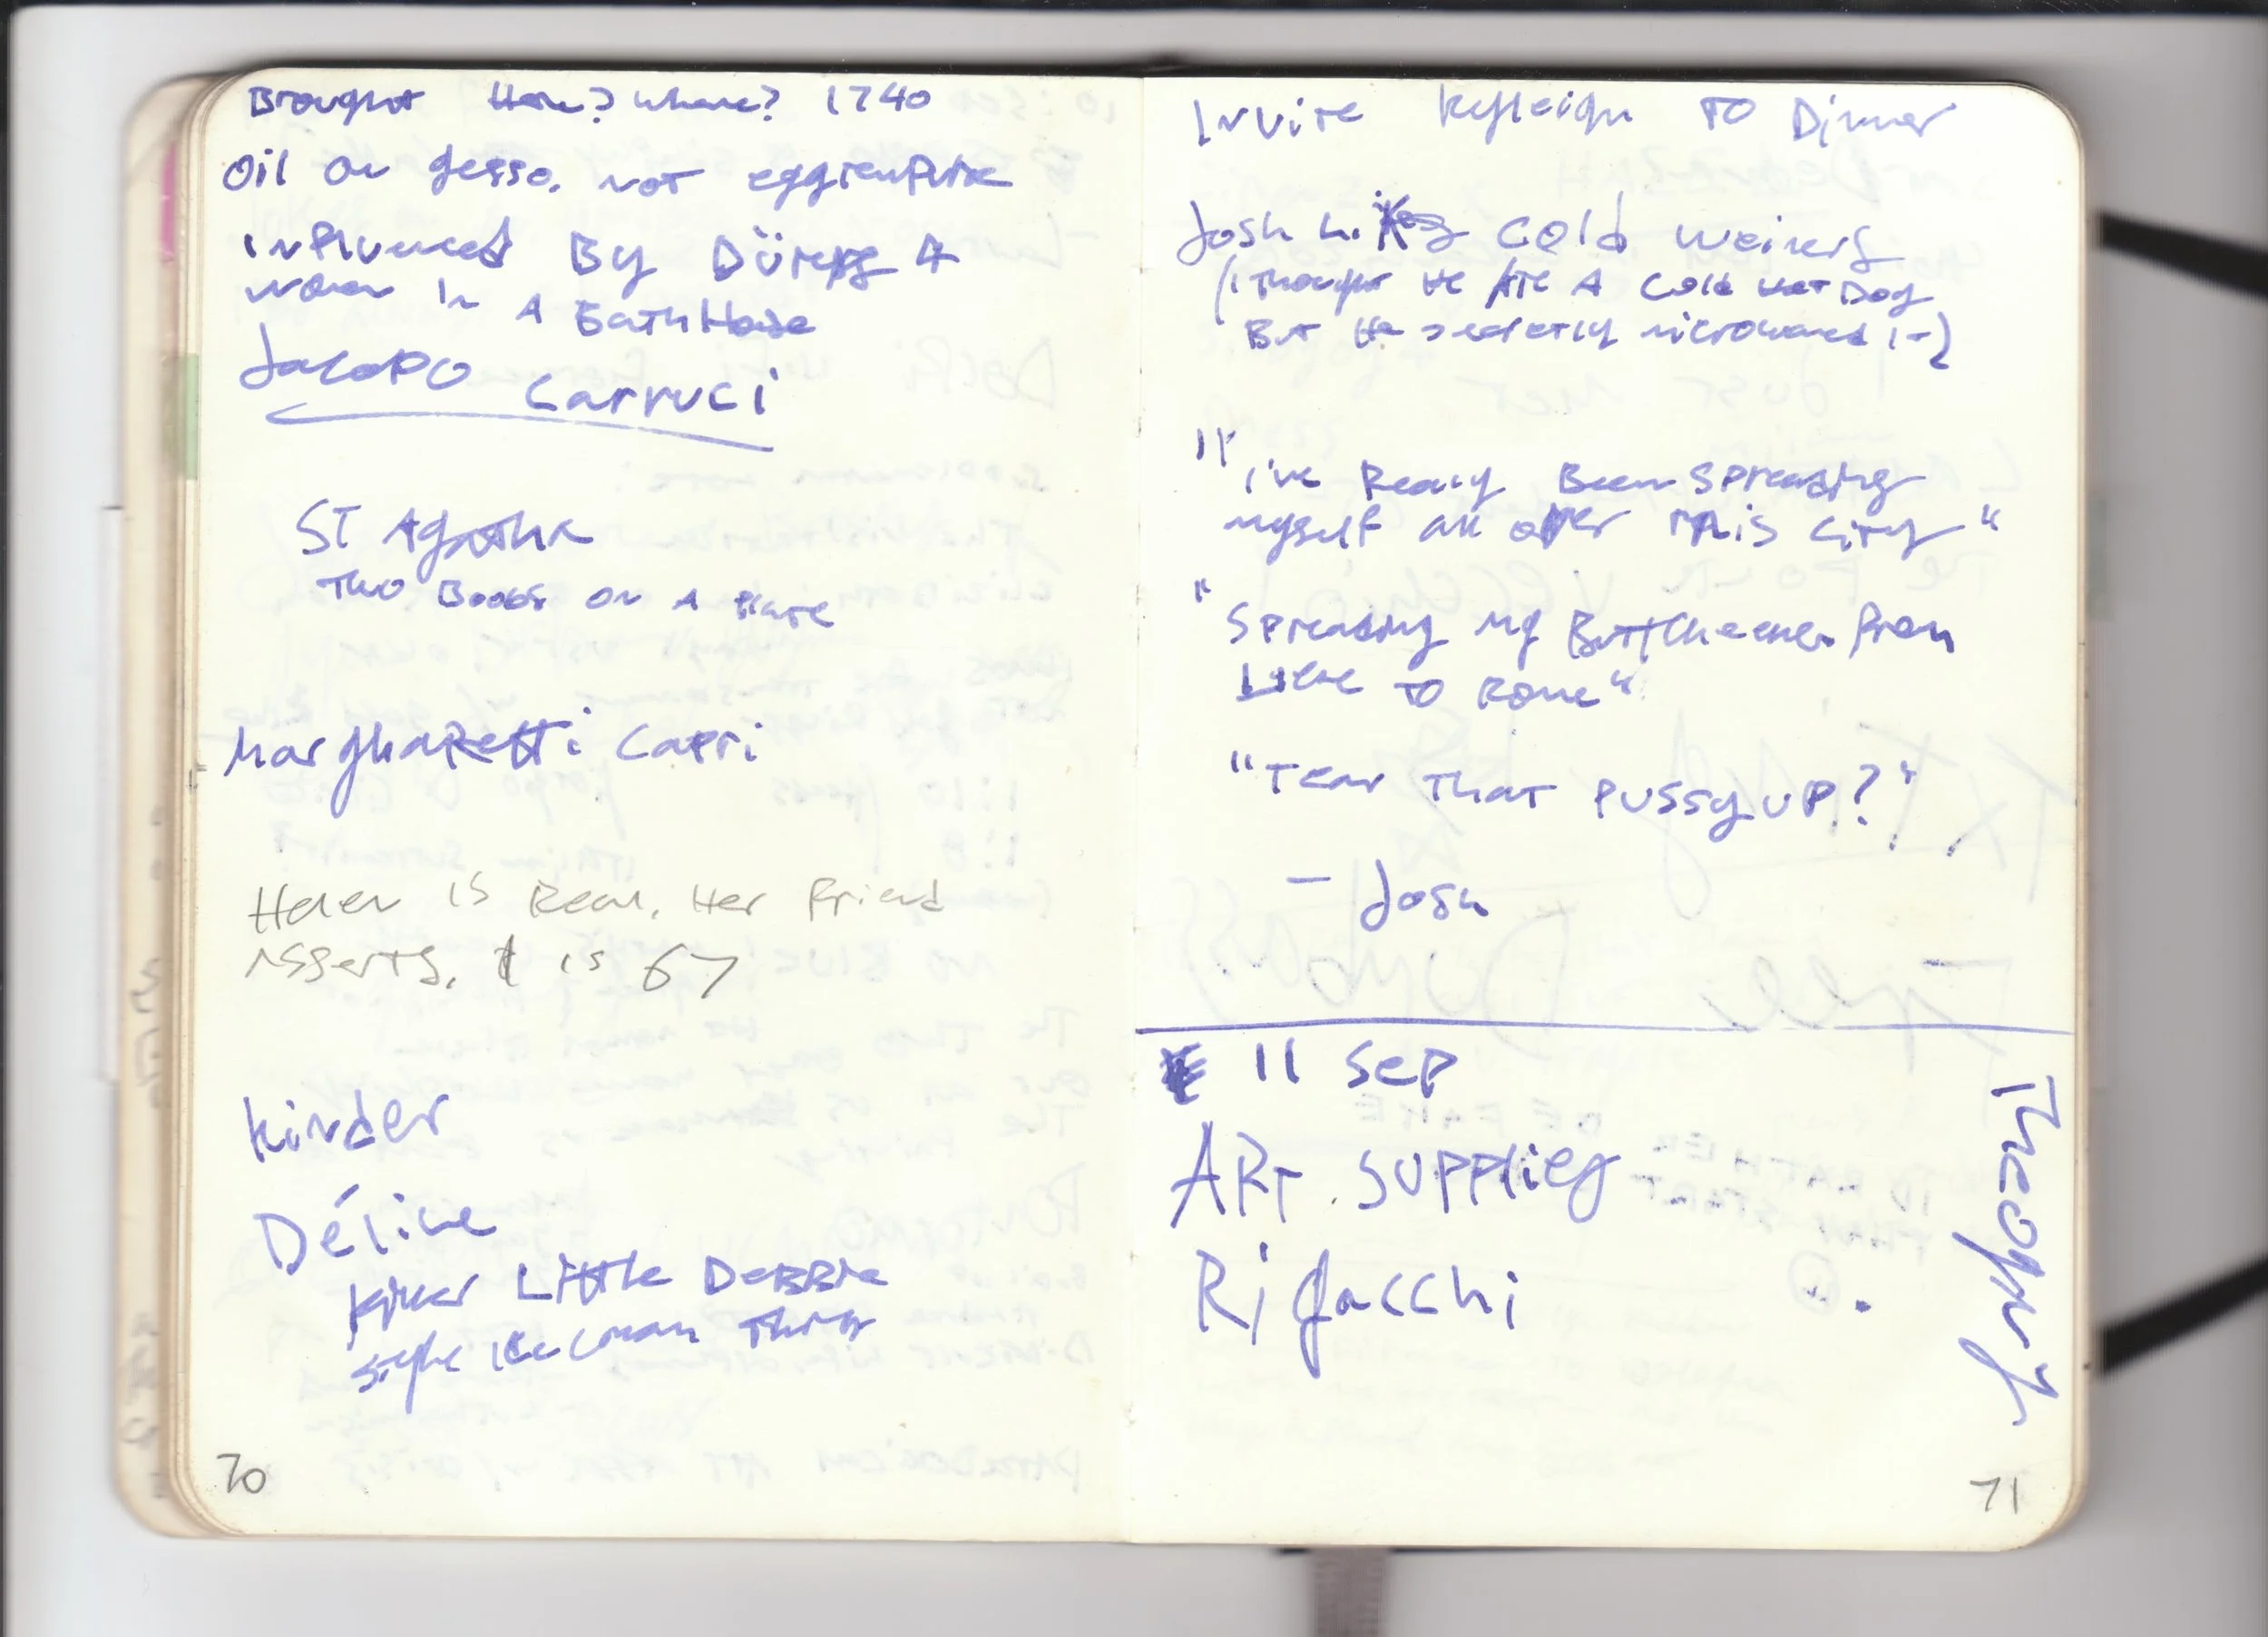 Brought Here? where? 1740
Oil on gesso. not eggtempura
Influenced By Dürer 4
women in A BathHouse
Jacopo Carruci
ST Agatha
Two Boobs on A Plate
Margharetti Capri
Helen is Real. Her friend
Asserts. t is 67
Kinder
Délice
Killer Little Debbie
style ice cream Thing
70
Invite Kyleigh TO Dinner
Josh Likes Cold Weiners
(I thought He Ate A Cold Hot Dog
But He secretly microwaved it)
"I've Really Been Spreading
myself all over this City"
"Spreading my Buttcheeks from
here to Rome"
"Tear That Pussy UP?"
- Josh
11 Sep
ART Supplies
Rigacchi
71